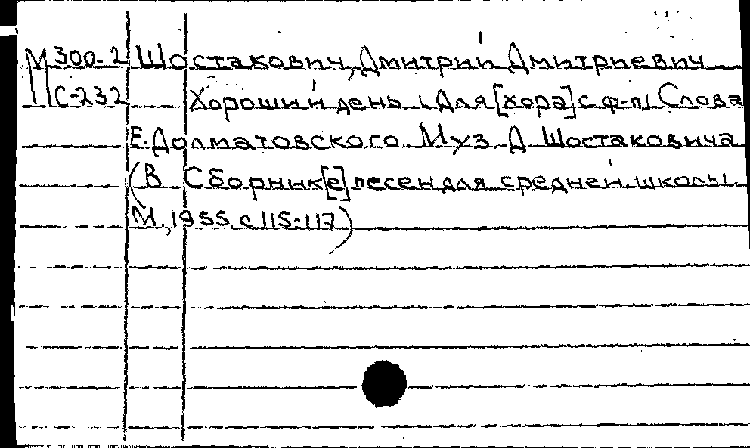 М300-2 Шостакович, Дмитрий Дмитриевич
С-232 Хороший день. Для [хора] с ф-п. Слова
Е. Долматовского. Муз. Д. Шостаковича
(В Сборник[е] песен для средней школы
М., 1955. с. 115-117)